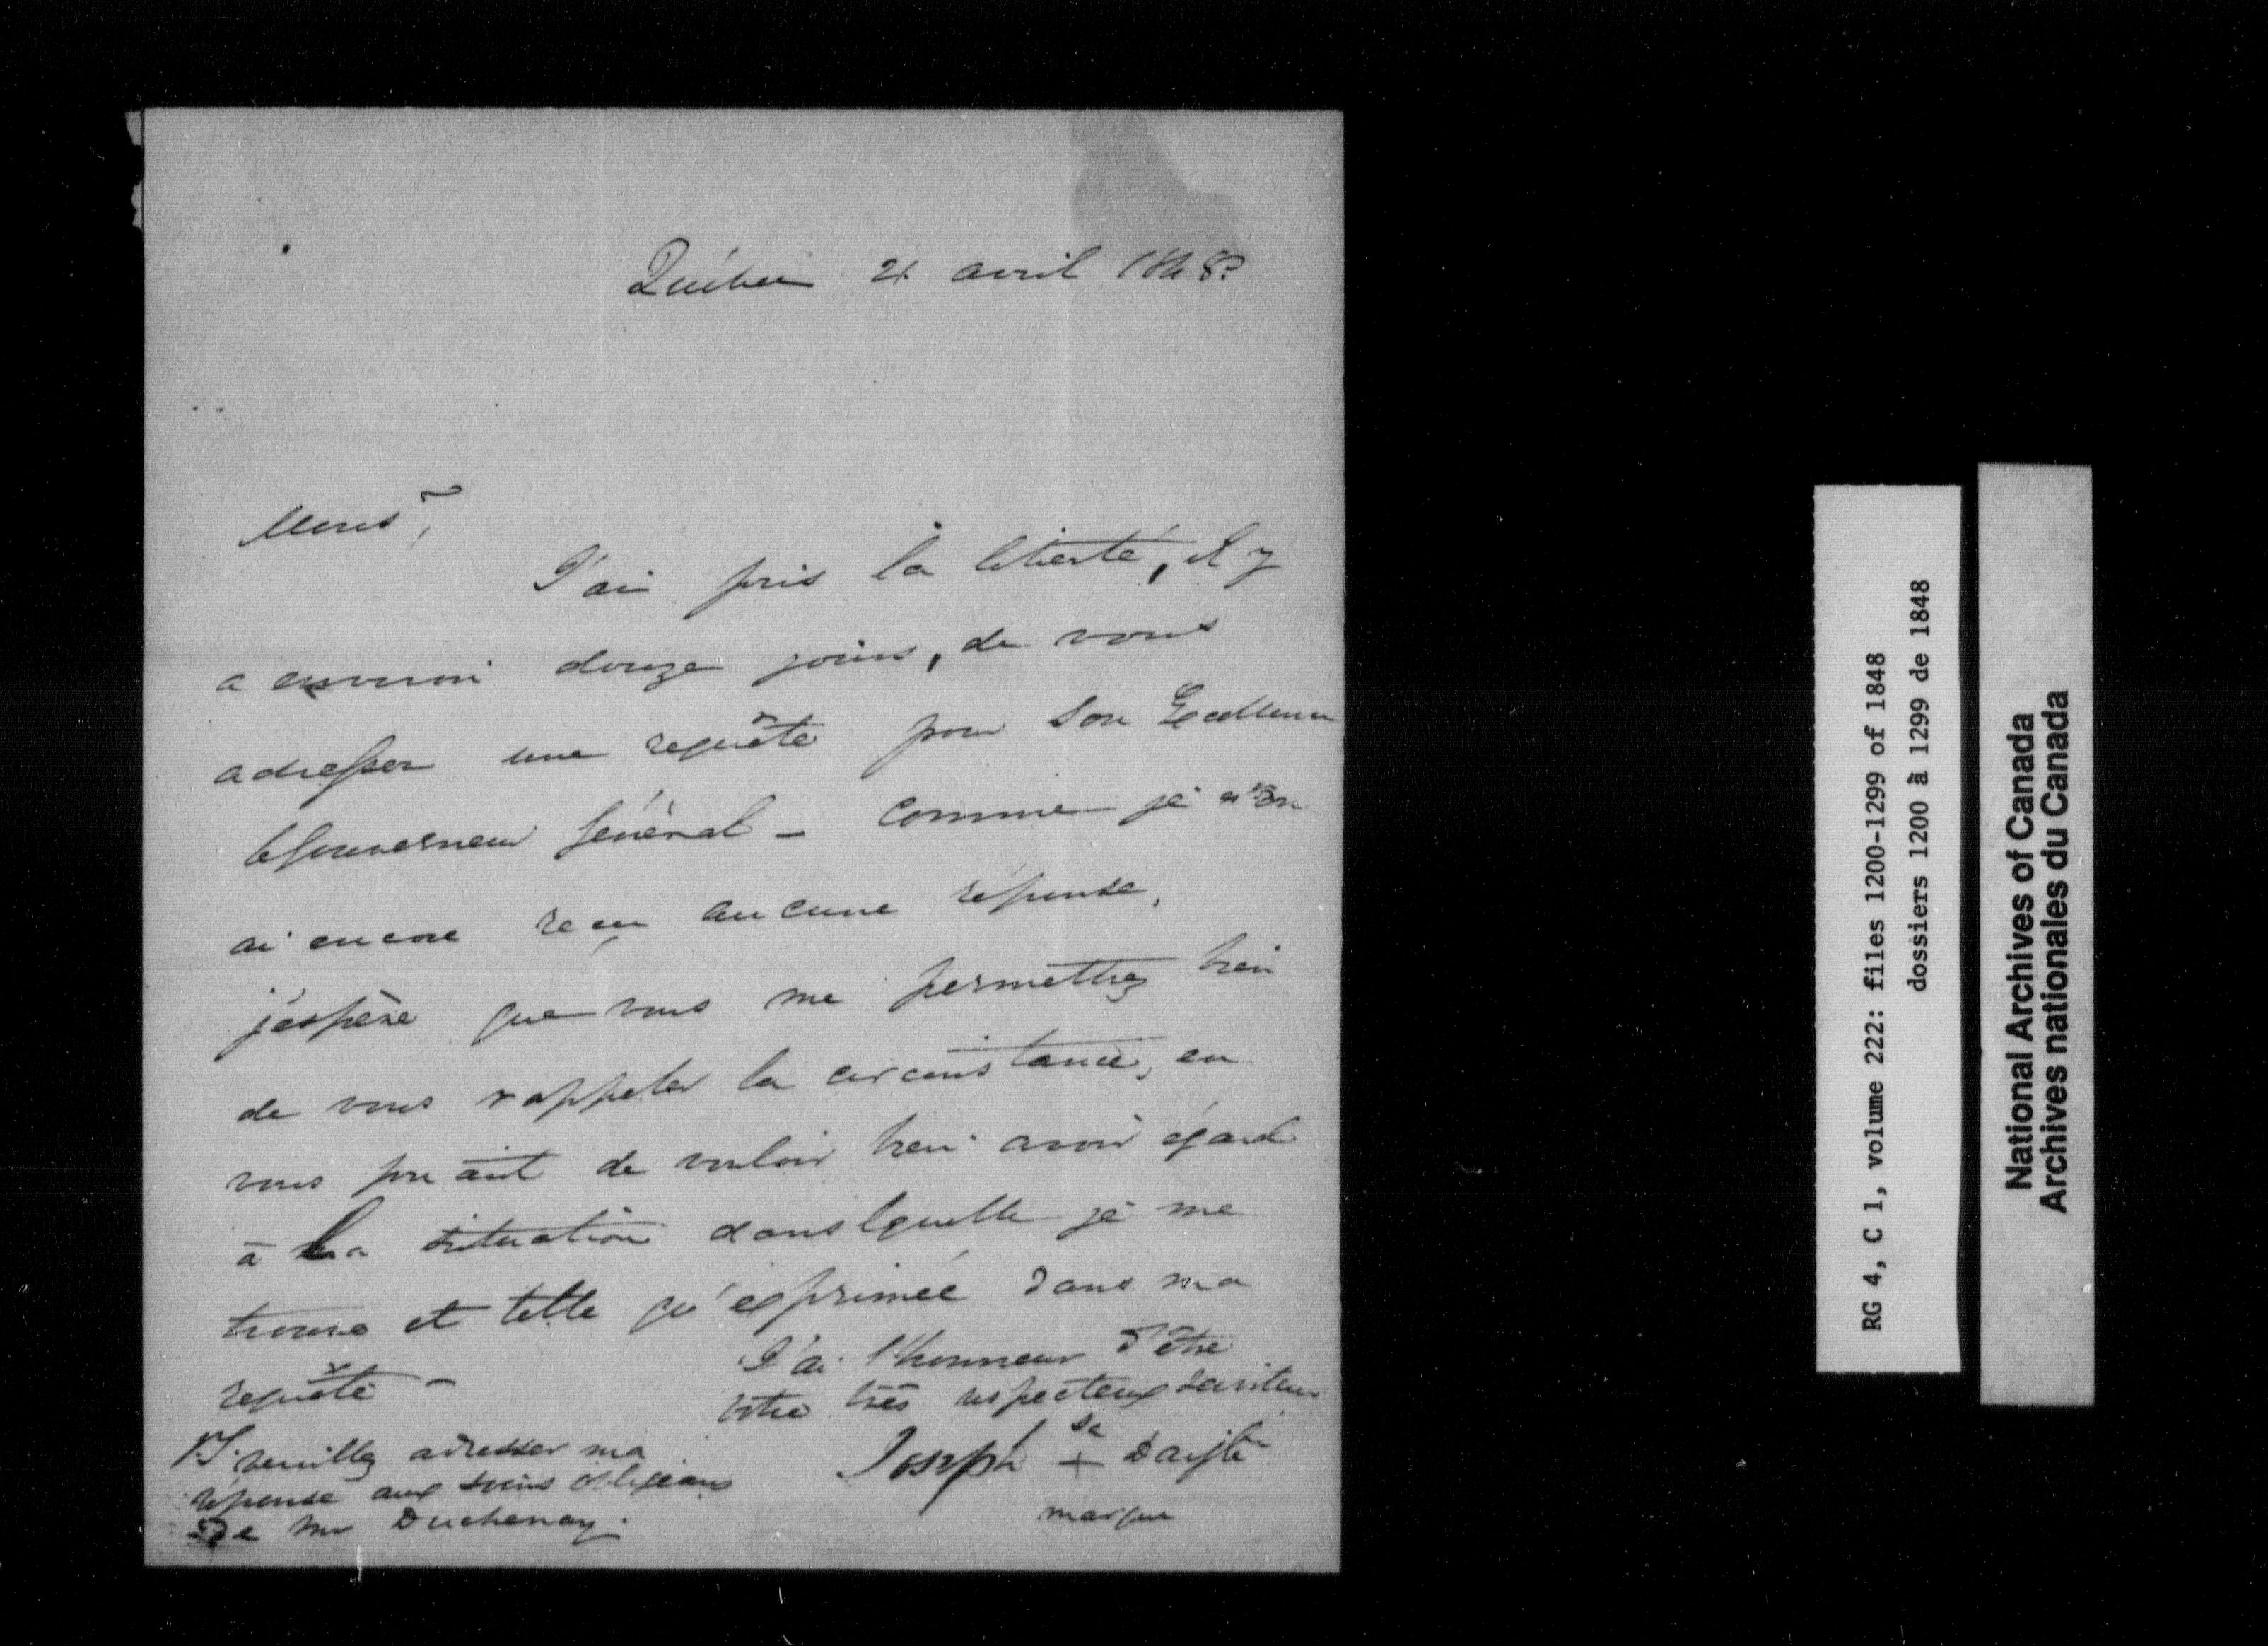 Québec 21 avril 1848.
Monsr,
J'ai pris la liberté, il y
a environ douze jours, de vous
adresser une requête pour Son Excellence
le Gouverneur Général - comme je n'en
ai encore reçu aucune réponse,
j'éspère que vous me permettrez bien
de vous rappeler la circonstance, en
vous priant de vouloir bien avoir égard
à la situation dans lquelle je me
trouve et telle qu'exprimée dans ma
requête -
J'ai l'honneur d'être
Votre très respecteux serviteur
Joseph sa + Daigle
marque
P.S. veuillez adresser ma
réponse aux soins obligeans
De Mr Duchenay.
RG 4, C 1, volume 222: files 1200-1299 of 1848
dossiers 1200 à 1299 de 1848
National Archives of Canada
Archives nationales du Canada